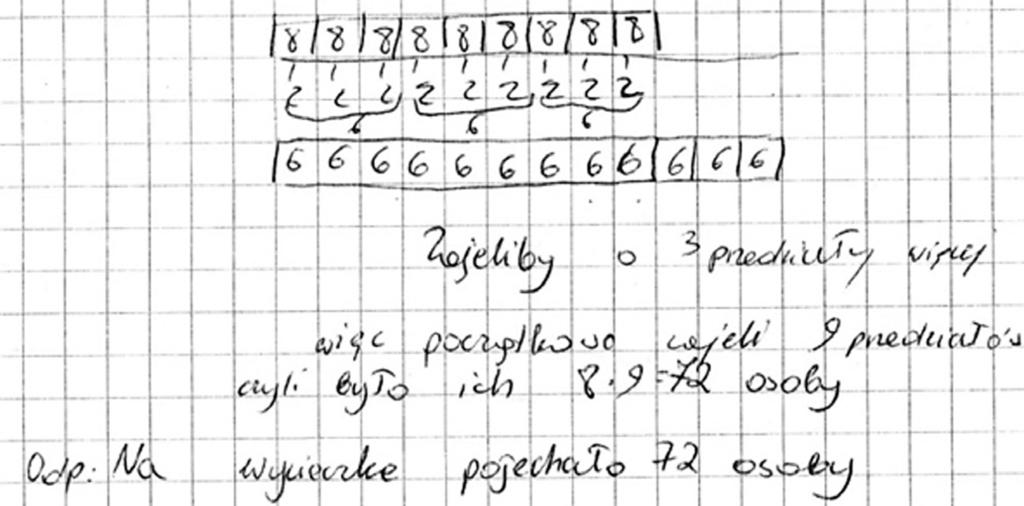 8 8 8 8 8 8 8 8 8
2 2 2 2 2 2 2 2 2
6 6 6
6 6 6 6 6 6 6 6 6 6 6 6
Zajeliby o 3 przedziały więcej
więc początkowo zajeli 9 przedziałów
czyli było ich 8·9=72 osoby
Odp: Na wycieczke pojechało 72 osoby